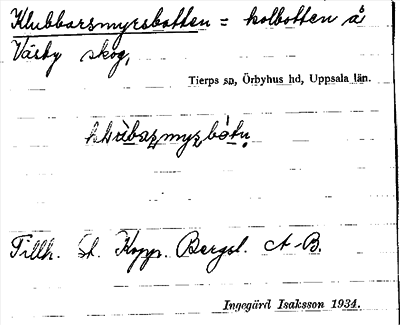 Klubbarsmyrsbotten = kolbotten å
Väsby skog,
Tierps sn, Örbyhus hd, Uppsala län.
Tillh. St. Kopp. Bergsl. A-B.
Ingegärd Isaksson 1934.